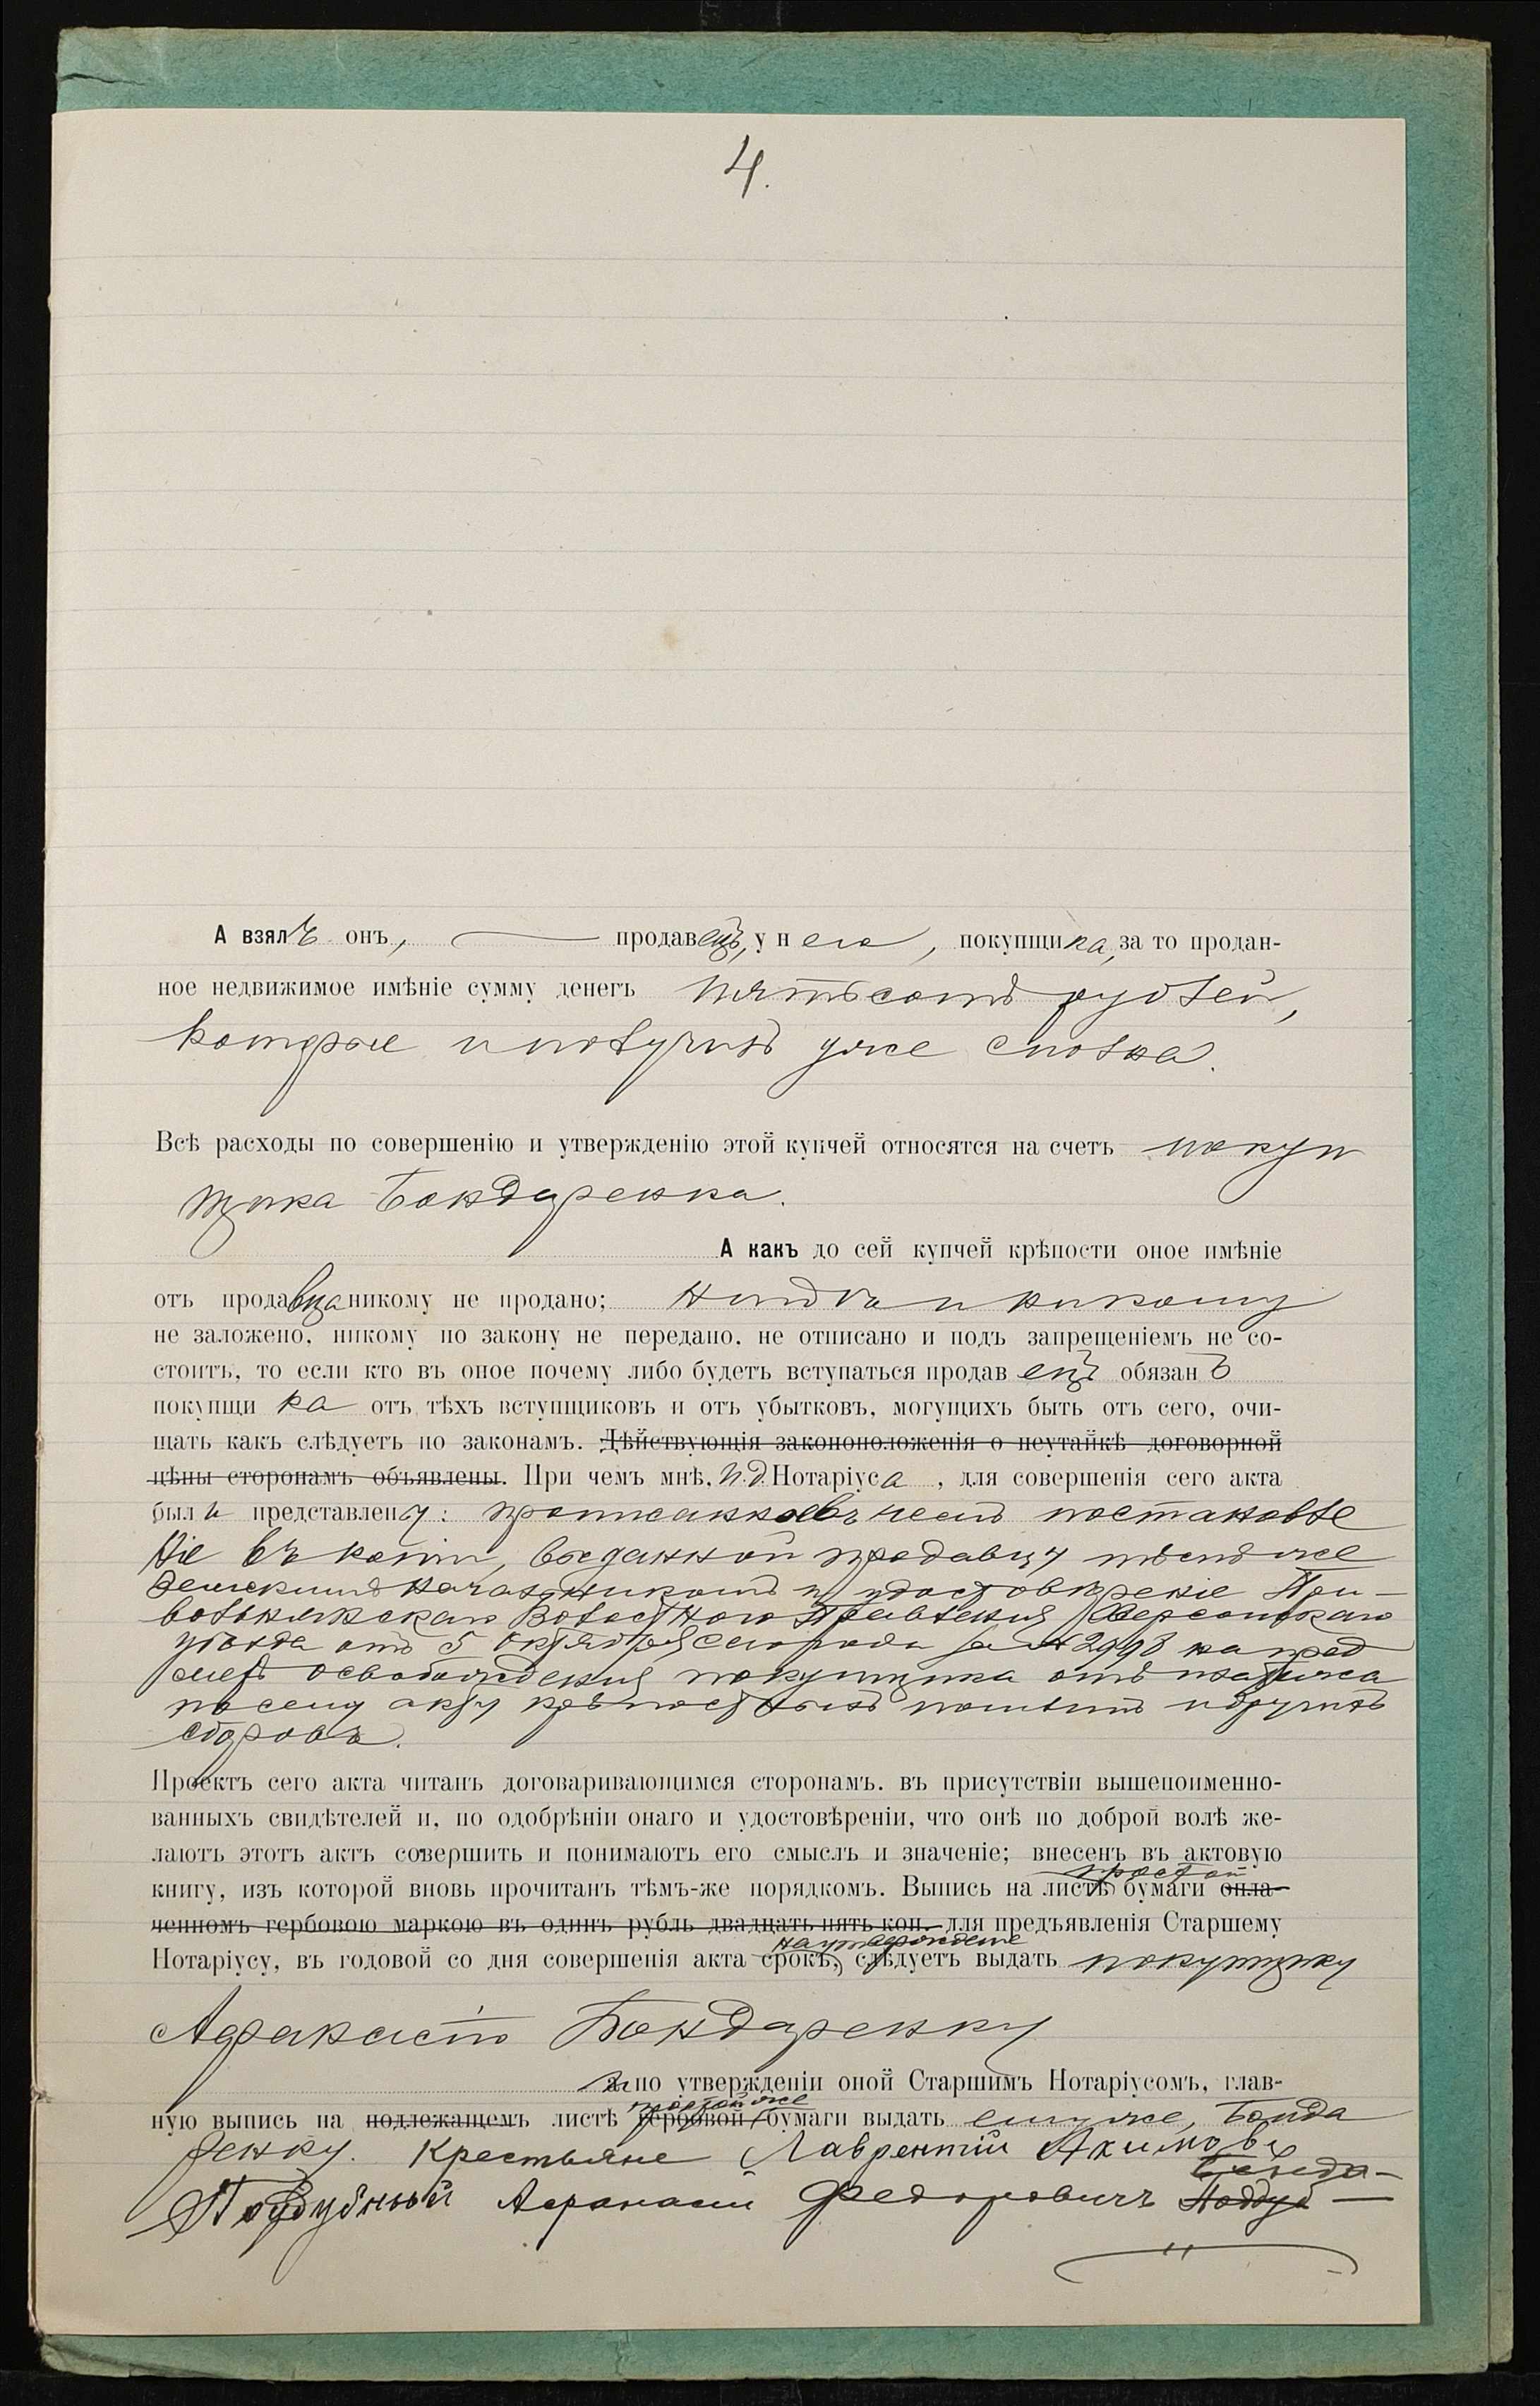 4.
А взялъ онъ, продавецъ, у него, покупщика, за то продан-
ное недвижимое имѣніе сумму денегъ пятьсотъ рублей,
которые и получилъ уже сполна.
Всѣ расходы по совершенію и утвержденію этой купчей относятся на счетъ покуп
щика Бондаренка.
А какъ до сей купчей крѣпости оное имѣніе
отъ продавца никому не продано; нигдѣ и никому
не заложено, никому по закону не передано, не отписано и подъ запрещеніемъ не со-
стоитъ, то если кто въ оное почему либо будетъ вступаться продавецъ обязанъ
покупщика отъ тѣхъ вступщиковъ и отъ убытковъ, могущихъ быть отъ сего, очи-
щать какъ слѣдуетъ по законамъ. Дѣйствующія законоположенія о неутайкѣ договорной
цѣны сторонамъ объявлены. При чемъ мнѣ, И.д. Нотаріуса, для совершенія сего акта
были представлены: прописанное въ немъ постановле
ніе въ копіи, выданной продавцу тѣмъ же
Земскимъ Начальникомъ и удостовѣреніе При-
вольнянскаго Волостного Правленія Херсонскаго
уѣзда отъ 5 Октября сего года за № 2998 на пред
метъ освобожденія покупщика отъ платежа
по сему акту крѣпостныхъ пошлинъ и другихъ
сборовъ.
Проектъ сего акта читанъ договаривающимся сторонамъ, въ присутствіи вышепоименно-
ванныхъ свидѣтелей и, по одобрѣніи онаго и удостовѣреніи, что онѣ по доброй волѣ же-
лаютъ этотъ актъ совершить и понимаютъ его смыслъ и значеніе; внесенъ въ актовую
простой
книгу, изъ которой вновь прочитанъ тѣмъ-же порядкомъ. Выпись на листѣ бумаги опла-
ченномъ гербовою маркою въ одинъ рубль двадцать пять коп. для предъявленія Старшему
на утвержденіе
Нотаріусу, въ годовой со дня совершенія акта срокъ, слѣдуетъ выдать покупщику
Афанасію Бондаренку
а по утвержденіи оной Старшимъ Нотаріусомъ, глав-
простой же
ную выпись на подлежащемъ листѣ гербовой бумаги выдать ему же, Бонда
ренку. Крестьяне Лаврентій Акимовъ
Бонда-
Поддубный Афанасій Федоровичъ Поддуб—